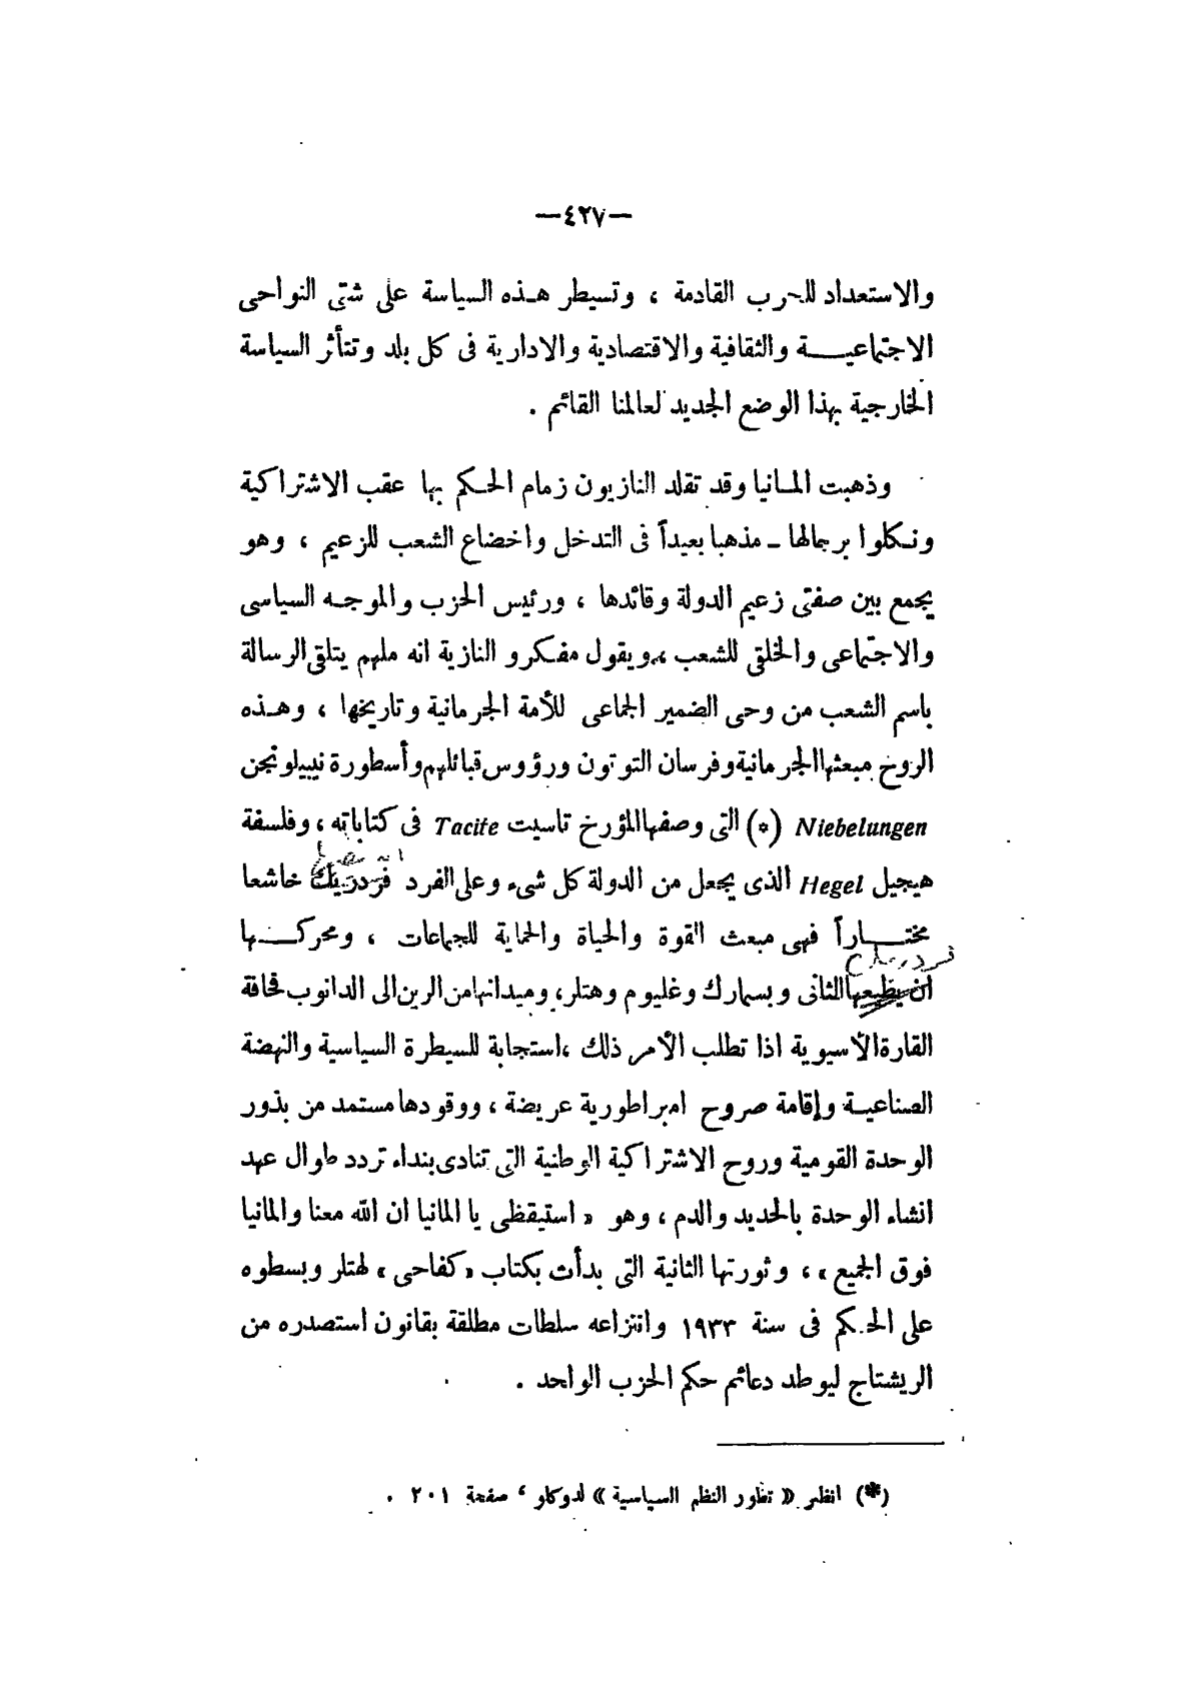 —٤٢٧—
والاستعداد للحرب القادمة ، وتسيطر هذه السياسة على شتى النواحى
الاجتماعية والثقافية والاقتصادية والادارية فى كل بلد وتتأثر السياسة
الخارجية بهذا الوضع الجديد لعالمنا القائم .
وذهبت المانيا وقد تقلد النازيون زمام الحكم بها عقب الاشتراكية
ونكلوا برجالها ـ مذهبا بعيداً فى التدخل واخضاع الشعب للزعيم ، وهو
يجمع بين صفتى زعيم الدولة وقائدها ، ورئيس الحزب والموجه السياسى
والاجتماعى والخلقى للشعب ، ويقول مفكرو النازية انه ملهم يتلقى الرسالة
باسم الشعب من وحى الضمير الجماعى للأمة الجرمانية وتاريخها ، وهذه
الروح مبعثها الجرمانية وفرسان التوتون ورؤوس قبائلهم وأسطورة نيبيلونجن
Niebelungen (*) التى وصفها المؤرخ تاسيت Tacite فى كتاباته ، وفلسفة
هيجيل Hegel الذى يجعل من الدولة كل شىء وعلى الفرد فردريك خاشعا
ان يطيعها
مختاراً فهى مبعث القوة والحياة والحماية للجماعات ، ومحركها
فردريك
أن يطيعها الثانى وبسمارك وغليوم وهتلر، وميدانها من الرين الى الدانوب فحافة
القارة الآسيوية اذا تطلب الأمر ذلك ، استجابة للسيطرة السياسية والنهضة
الصناعية وإقامة صروح امبراطورية عريضة ، ووقودها مستمد من بذور
الوحدة القومية وروح الاشتراكية الوطنية التى تنادى بنداء تردد طوال عهد
انشاء الوحدة بالحديد والدم ، وهو « استيقظى يا المانيا ان الله معنا والمانيا
فوق الجميع » ، وثورتها الثانية التى بدأت بكتاب «كفاحى» لهتلر وبسطوه
على الحكم فى سنة ١٩٣٣ وانتزاعه سلطات مطلقة بقانون استصدره من
الريشتاج ليوطد دعائم حكم الحزب الواحد .
(*) انظر « تطور النظم السياسية » لدوكلو ، صفحة ٢٠١ .